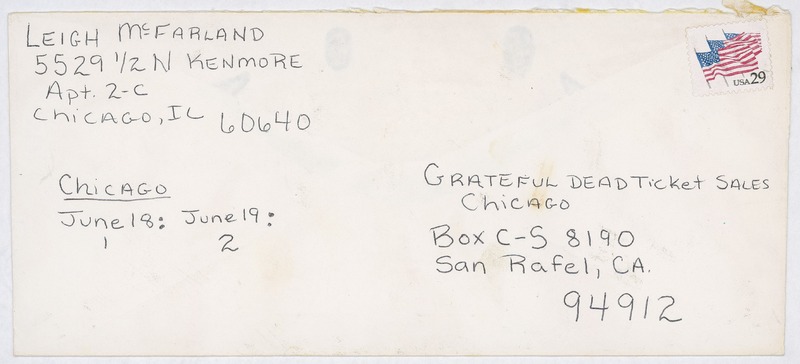 LEIGH McFARLAND
5529 1/2 N KENMORE
Apt. 2-C
CHICAGO, IL 60640
USA 29
CHICAGO
June 18: June 19:
1 2
GRATEFUL DEAD Ticket SALES
CHICAGO
Box C-S 8190
San Rafel, CA.
94912